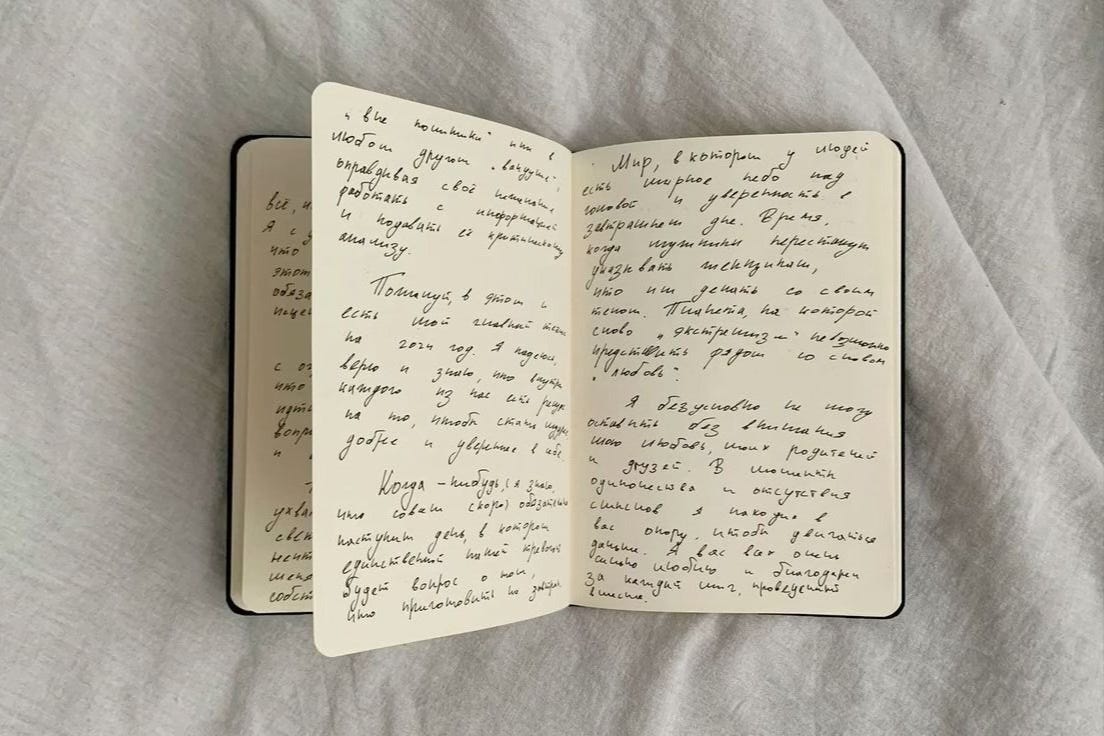 всё, и
Я с у
что
этот
обяза
ище
с о
что
идти
вопр
и
ухва
свет
мент
меня
собст
„вне политики“ или в
любом другом „вакууме“,
оправдывая своё нежелание
работать с информацией
и подавать её критическому
анализу.
Пожалуй, в этом и
есть мой главный
на 2024 год. Я надеюсь,
верю и знаю, что внутри
каждого из нас есть ресурс
на то, чтобы стать мудрее
добрее и увереннее в себе.
Когда-нибудь, (я знаю,
что совсем скоро) обязательно
наступит день, в котором
единственной нашей тревогой
будет вопрос о том,
что приготовить на завтрак.
Мир, в котором у людей
есть мирное небо над
головой и уверенность в
завтрашнем дне. Время,
когда мужчины перестанут
указывать женщинам,
что им делать со своим
телом. Планета, на которой
слово „экстремизм“ невозможно
представить рядом со словом
„любовь“.
Я безусловно не могу
оставить без внимания
мою любовь, моих родителей
и друзей. В моменты
одиночества и отсутствия
смыслов я находил в
вас опору, чтобы двигаться
дальше. Я вас всех очень
сильно люблю и благодарен
за каждый миг, проведенный
вместе.